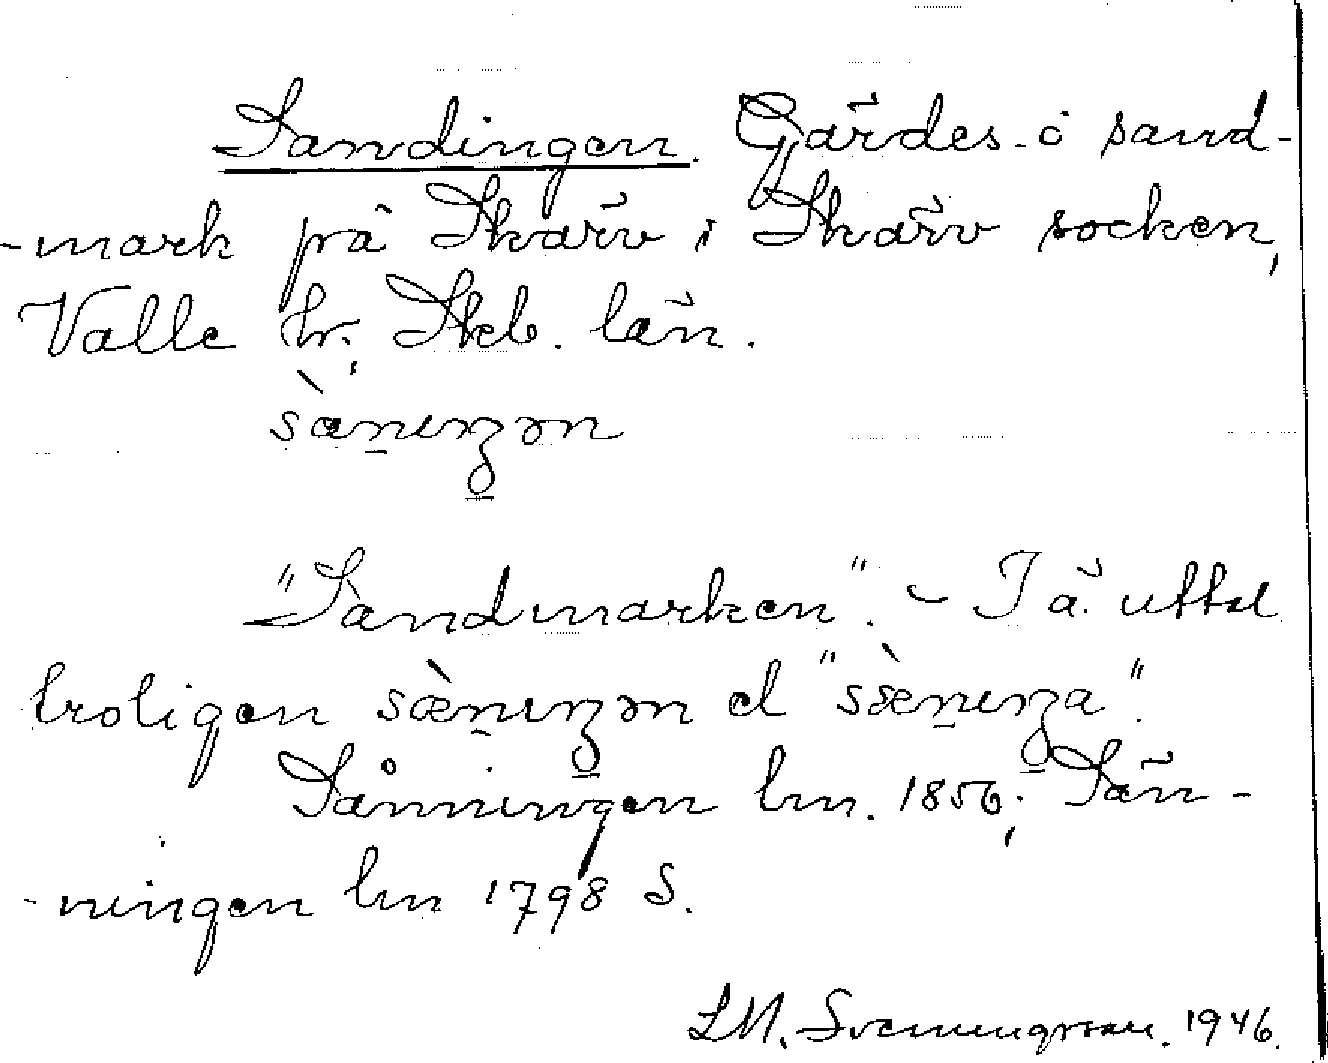 Sandingen. Gärdes- o sand-
-mark på Skärv i Skärv socken,
Valle hr; Skb. län.
sànıŋən
"Sandmarken". – I ä. uttal
troligen sæ̀nıŋən el "sæ̀nıŋa".
Sånningen lm. 1856; Sän-
-ningen lm 1798 S.
LM. Svenungsson. 1946.